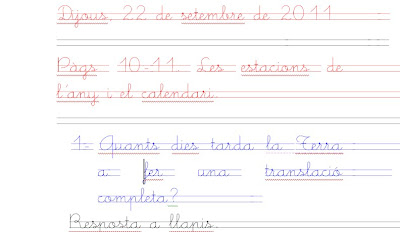 Dijous, 22 de setembre de 2011
Pàgs 10-11. Les estacions de
l'any i el calendari.
1- Quants dies tarda la Terra
a fer una translació
completa?
Resposta a llapis.